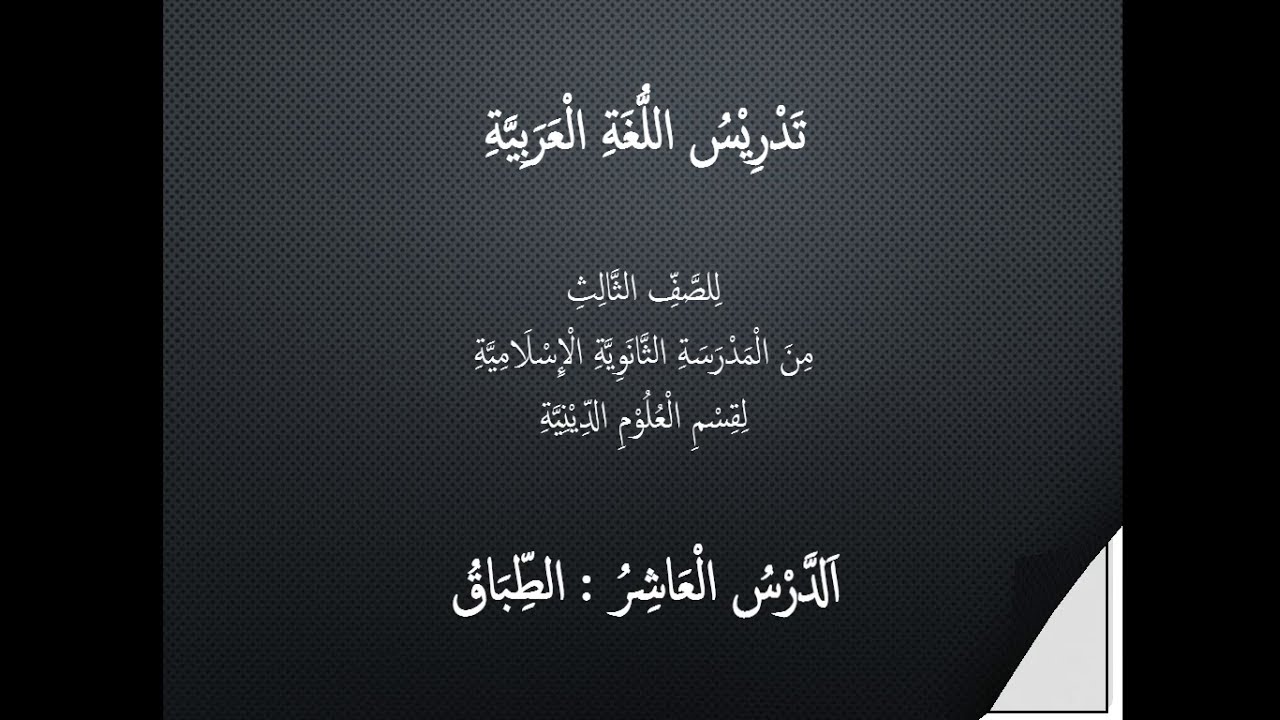 تَدْرِيْسُ اللُّغَةِ الْعَرَبِيَّةِ
لِلصَّفِّ الثَّالِثِ
مِنَ الْمَدْرَسَةِ الثَّانَوِيَّةِ الْإِسْلَامِيَّةِ
لِقِسْمِ الْعُلُوْمِ الدِّيْنِيَّةِ
اَلدَّرْسُ الْعَاشِرُ : الطِّبَاقُ